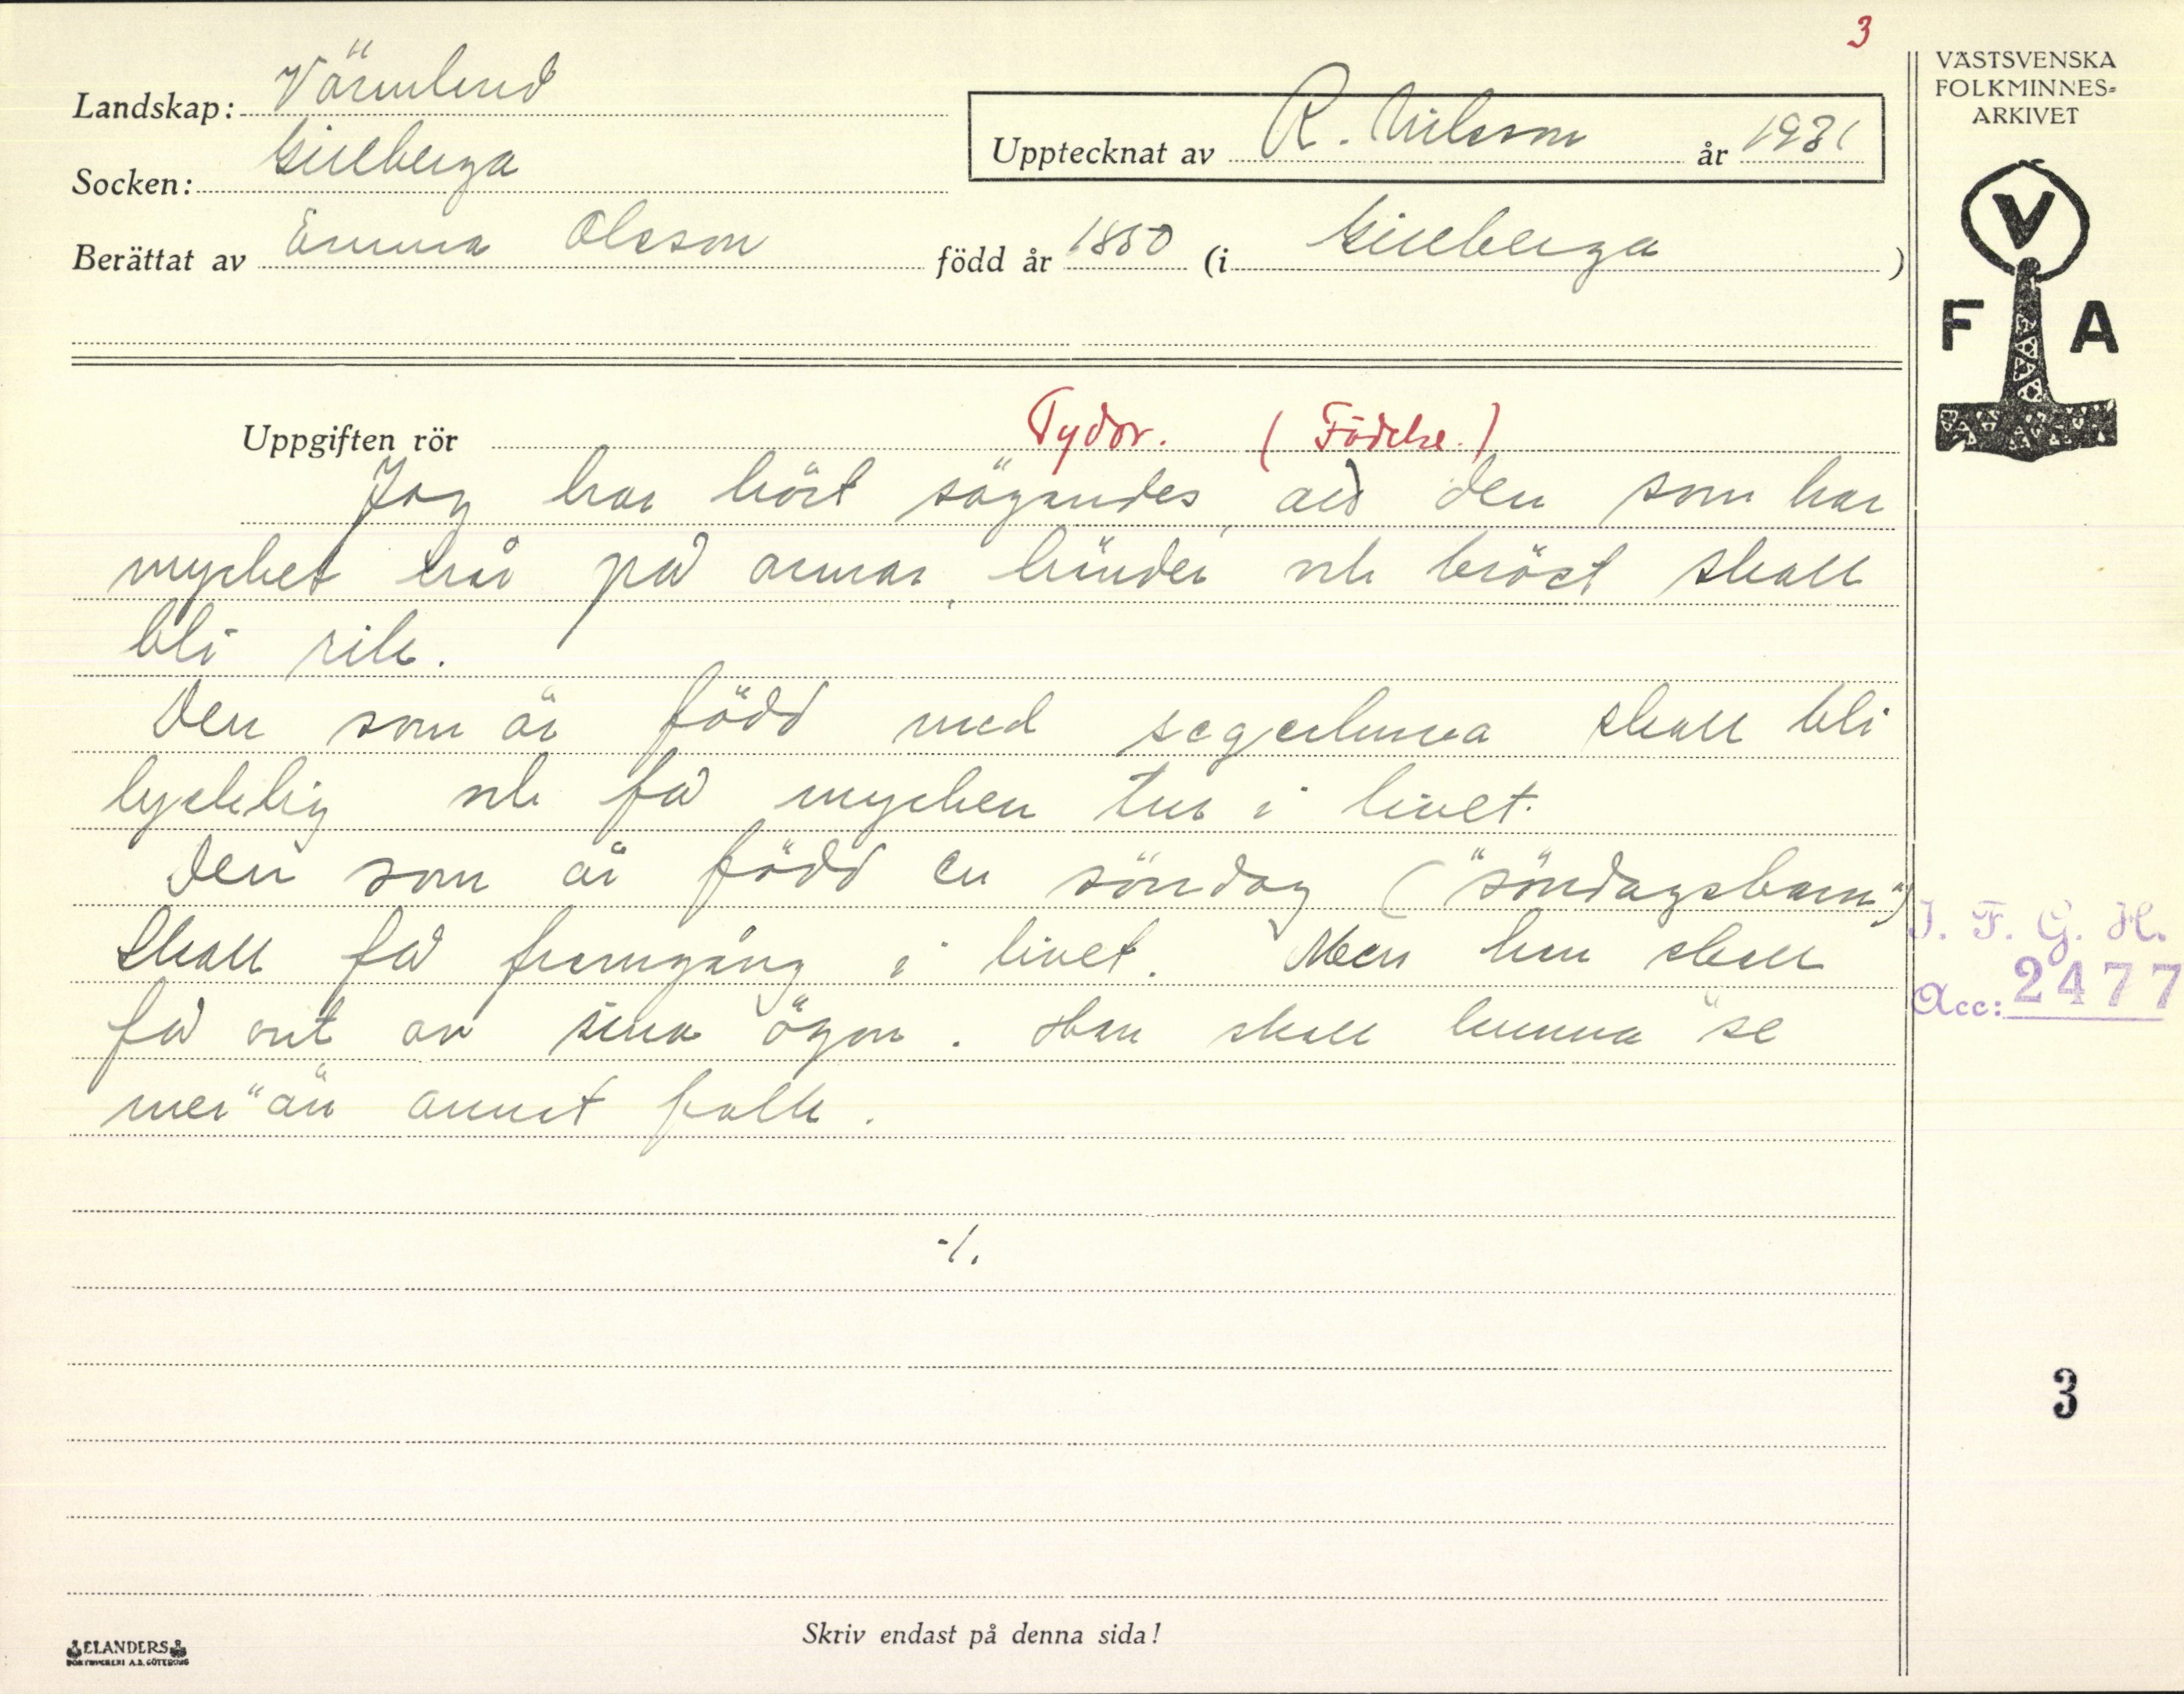 3
VÄSTSVENSKA
FOLKMINNES-
ARKIVET
Landskap: Värmland
Socken: Gillberga
Upptecknat av R. Nilsson år 1931
Berättat av Emma Olsson född år 1850 (i Gillberga)
V
F A
Uppgiften rör Tydor. (Födelse.)
Jag har hört sägandes, att den som har
mycket hår på armar, händer och bröst skall
bli rik.
Den som är född med segerhuva skall bli
lycklig och få mycken tur i livet.
Den som är född en söndag ("söndagsbarn")
skall få framgång i livet. Men han skall
få ont av sina ögon. Han skall kunna "se
mer" än annat folk.
J. F. G. H.
Acc: 2477
-/.
3
Skriv endast på denna sida!
ELANDERS
BOKTRYCKERI A.B. GÖTEBORG